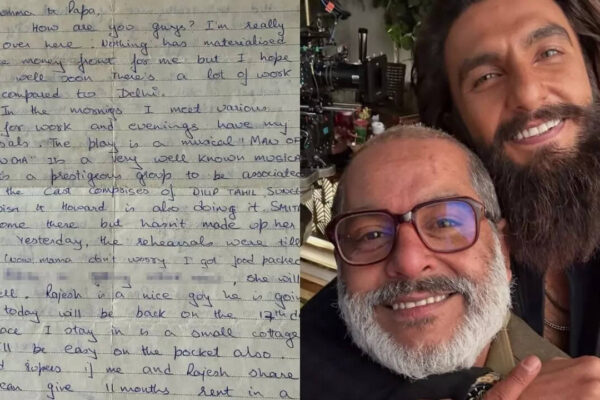 mma & Papa,
How are you guys? I'm really
over here. Nothing has materialised
e money front for me but I hope
well soon. There's a lot of work
compared to Delhi.
In the mornings I meet various
for work and evenings have my
sals. The play is a musical "MAN OF
. It's a very well known musical
s a prestigeous group to be associated
the Cast comprises of DILIP TAHIL
& Howard is also doing it. SMIT
ome there but hasn't made up her
Yesterday, the rehearsals were till
mama don't worry I got food packed
, she will
ell. Rajesh is a nice guy he is going
today will be back on the 17th
ace I stay in is a small cottage
ll be easy on the pocket also.
rupees if me and Rajesh share
can give 11 months rent in a